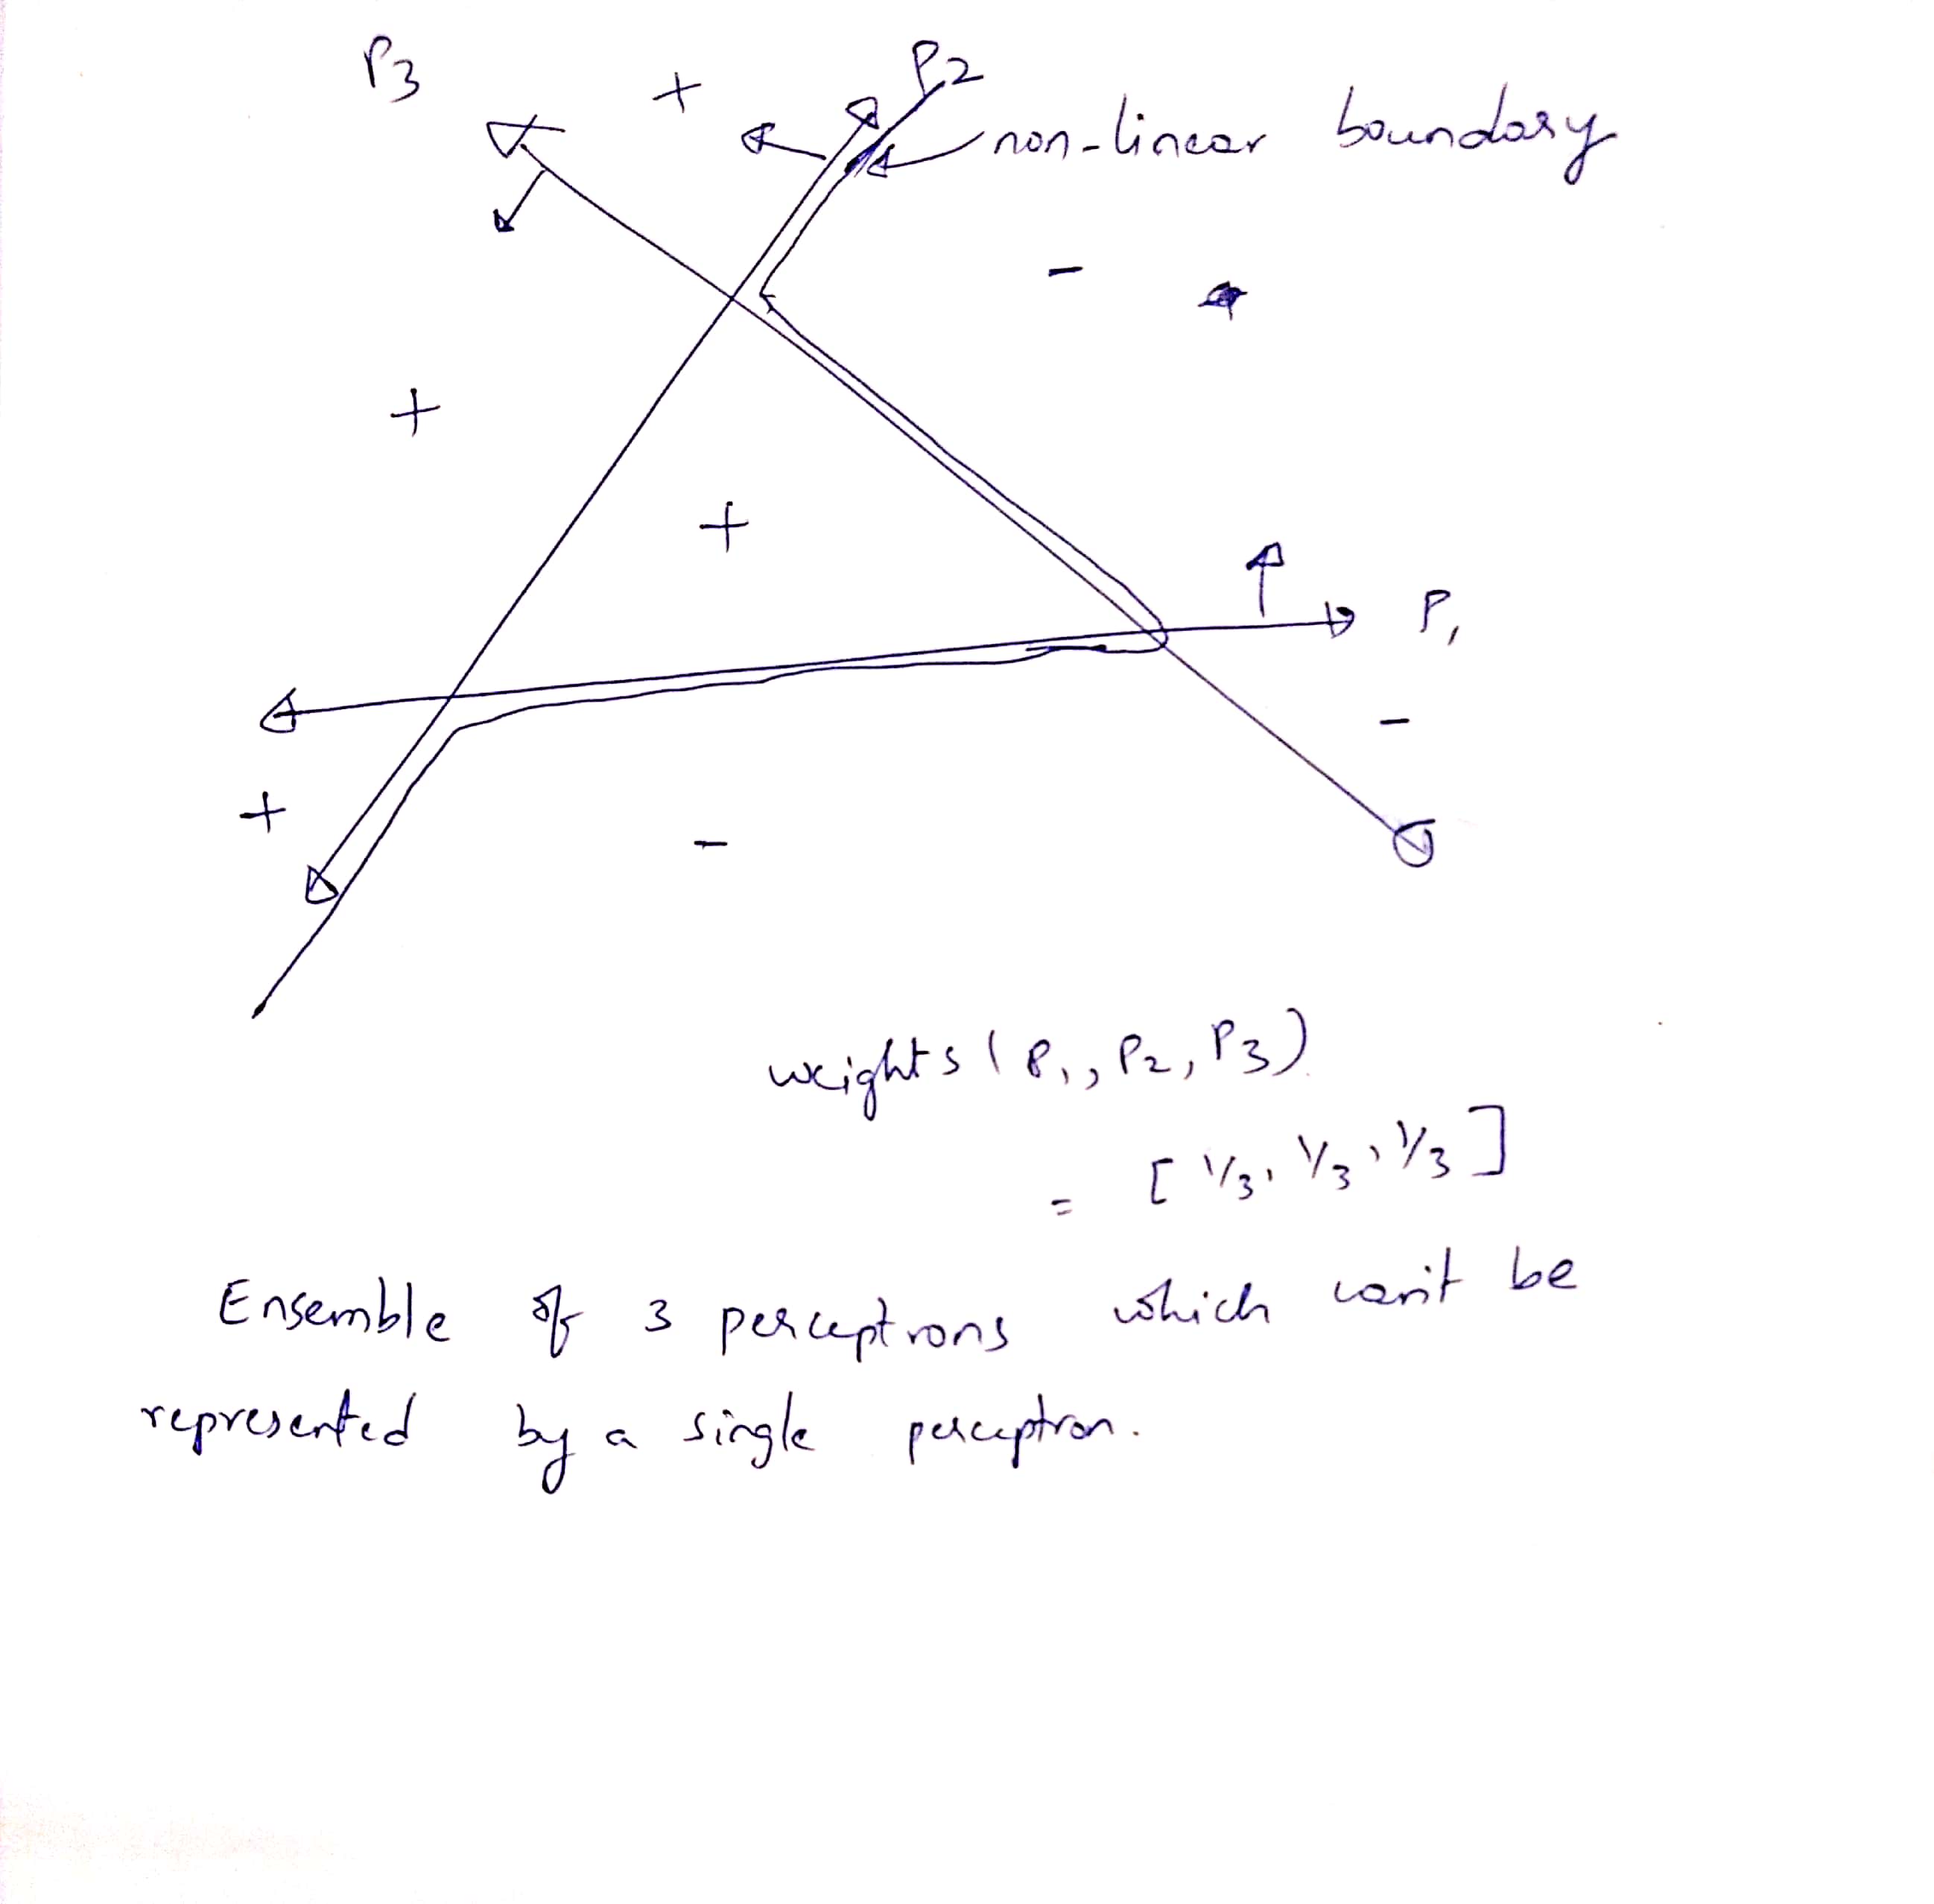 P3 + P2
non-linear boundary
-
+
+
P1
-
+
-
weights (P1, P2, P3)
= [ 1/3, 1/3, 1/3 ]
Ensemble of 3 perceptrons which can't be
represented by a single perceptron.